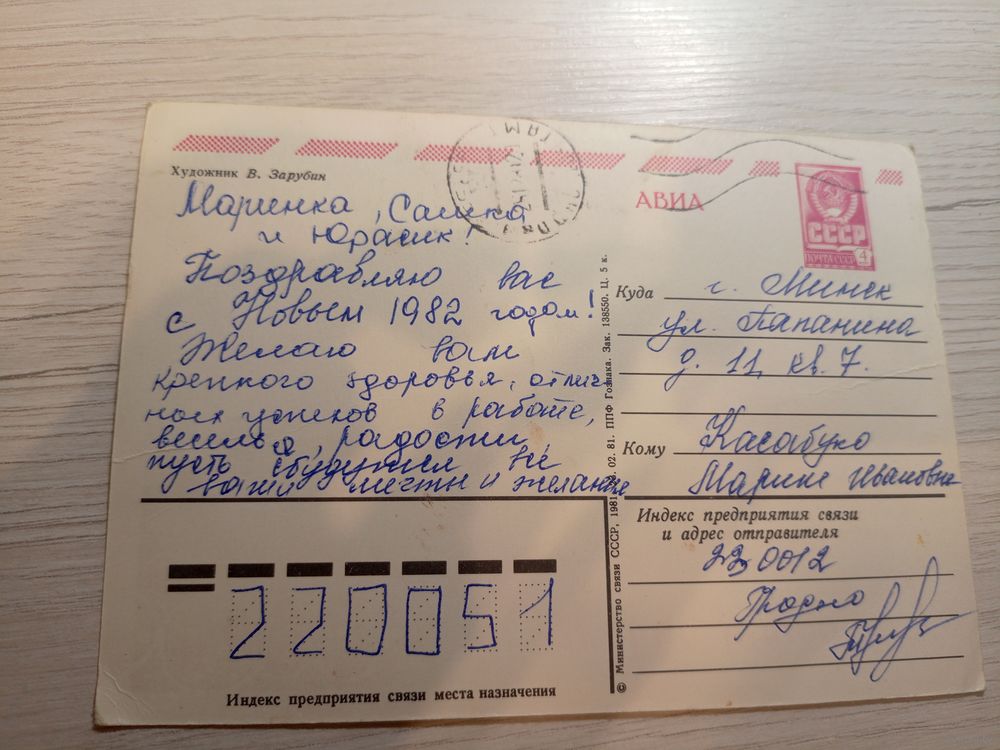 Художник В. Зарубин
АВИА
СССР
ПОЧТА СССР 4
Маринка, Сашка
и Юрасик!
Поздравляю вас
с Новым 1982 годом!
Желаю вам
крепкого здоровья, отлич-
ных успехов в работе,
веселья, радости,
пусть сбудутся все
ваши мечты и желания
Куда г. Минск
ул. Папанина
д. 11, кв. 7.
Кому Касабуко
Марине Ивановне
Индекс предприятия связи
и адрес отправителя
230012
Гродно
220051
Индекс предприятия связи места назначения
© Министерство связи СССР, 1981. 02. 81. ППФ Гознака. Зак. 138550. Ц. 5 к.